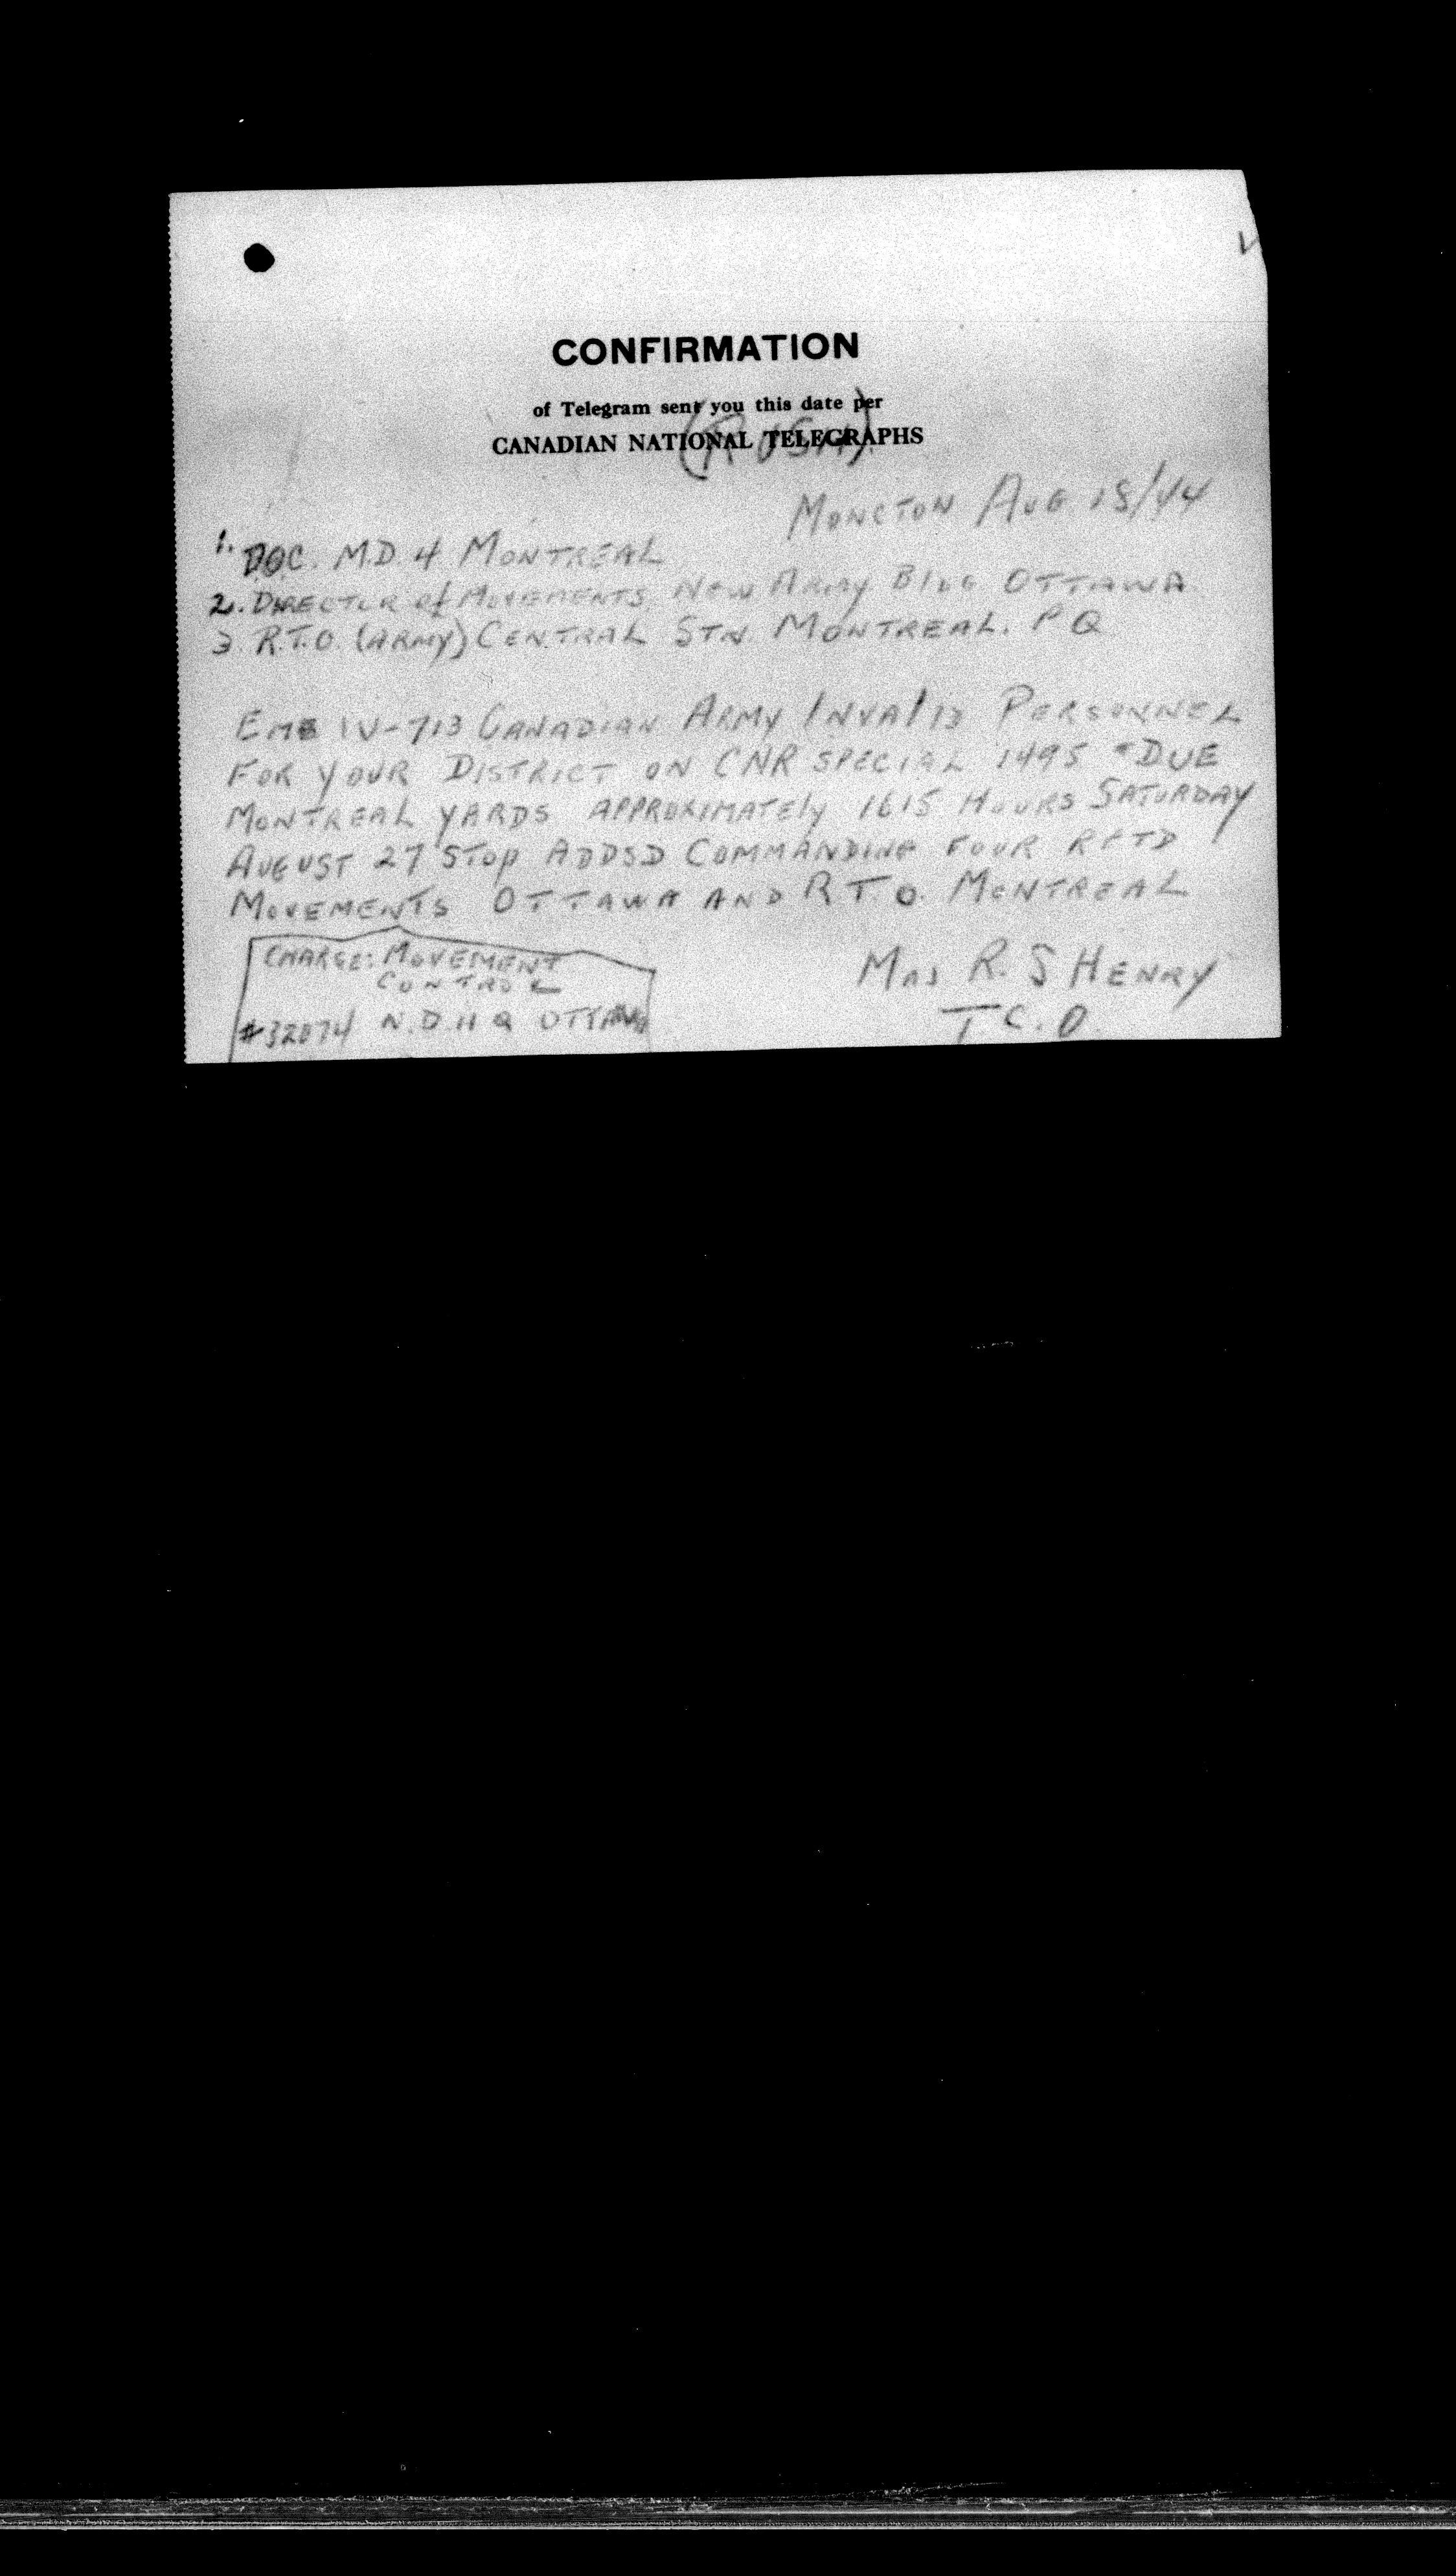 CONFIRMATION
of Telegram sent you this date per
CANADIAN NATIONAL TELEGRAPHS
(RUSH)
MONCTON AUG 18/44
1. DOC. M.D. 4 MONTREAL
2. DIRECTOR of MOVEMENTS NEW ARMY BLDG OTTAWA
3. R.T.O. (ARMY) CENTRAL STN. MONTREAL. PQ
W-713 CANADIAN ARMY INVALID PERSONNEL
FOR YOUR DISTRICT ON CNR SPECIAL 1495 DUE
MONTREAL YARDS APPROXIMATELY 1615 HOURS SATURDAY
AUGUST 27 STOP ADDSD COMMANDING FOUR RPTD
MOVEMENTS OTTAWA AND R.T.O. MONTREAL
CHARGE: MOVEMENT
CONTROL
#32074 N.D.H.Q OTTAWA
MAJ R. S HENRY
T.C.O.